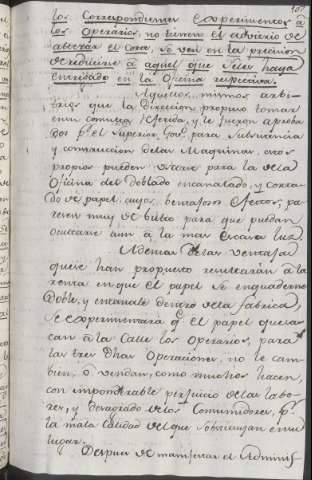 los Correspondientes Experimentos â
los Operarios, no tienen el advitrio de
alterar el cosa, se ven en la precision
de reducirse â aquel que se les haya
enseñado en la Oficina respectiva.
Aquellos mismos arbi-
trios que la Direccion propuso tomar
en su consulta referida, y le fueron aproba
dos pr. el Superior Govo. para subsistencia
y construccion de las Maquinas, esos
propios pueden usarse para la de la
Oficina del Doblado encanalado, y corta
do de papel, cuyos ventajosos efectos, pa
recen muy de bulto para que puedan
ocultarse aun â la mas escasa luz.
Ademas de las ventajas
que se han propuesto resultarán â la
renta en que el papel se enquaderne
Doble, y encanale dentro de la fabrica,
se experimentará qe. el papel que sa-
can â la Calle los Operarios, para
las tres dhas Operaciones, no le cam-
bien, ô vendan, como muchos hacen,
con imponderable perjuicio de las labo-
res, y desagrado de los Consumidores, pr.
la mala Calidad del que substituyen en su
lugar.
Despues de manifestar el Adminis